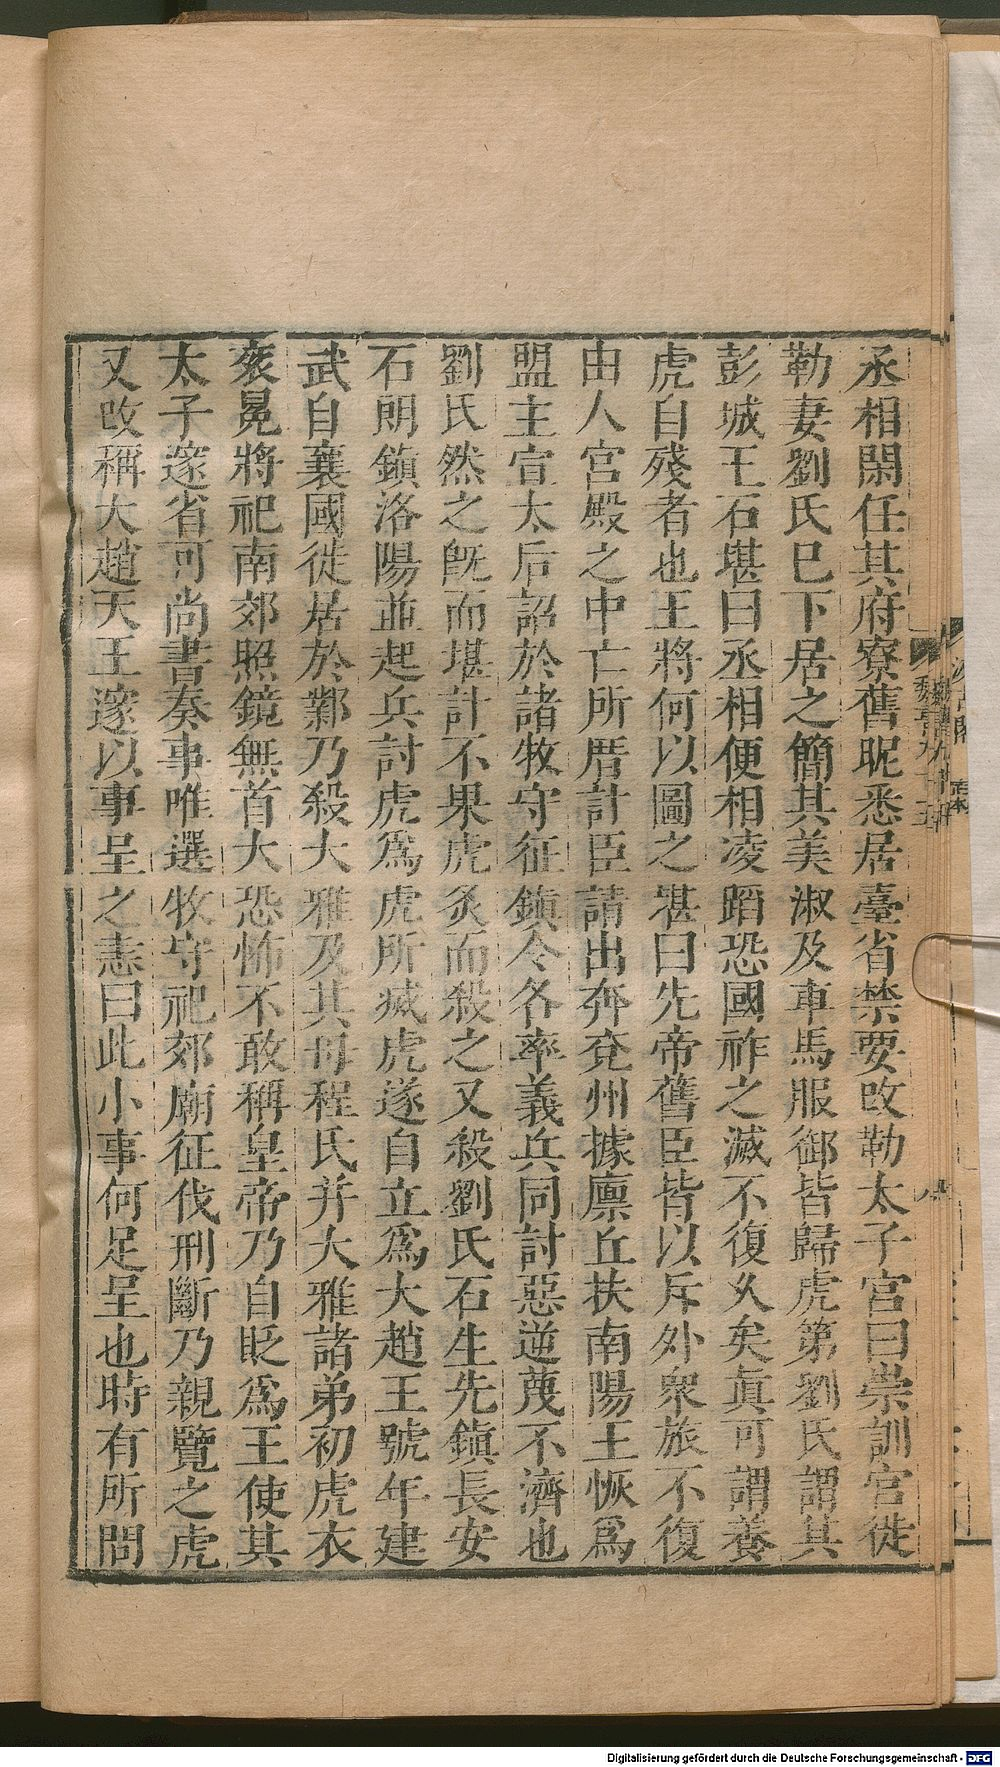 丞相閑任其府寮舊昵悉居臺省禁要改勒太子宮曰崇訓宮徙
勒妻劉氏已下居之簡其美淑及車馬服御皆歸虎第劉氏謂其
彭城王石堪曰丞相便相凌蹈恐國祚之滅不復久矣眞可謂養
虎自殘者也王將何以圖之堪曰先帝舊臣皆以斥外衆旅不復
由人宮殿之中亡所厝計臣請出奔兗州據廩丘扶南陽王恢爲
盟主宣太后詔於諸牧守征鎮令各率義兵同討惡逆蔑不濟也
劉氏然之旣而堪計不果虎炙而殺之又殺劉氏石生先鎮長安
石朗鎮洛陽並起兵討虎爲虎所滅虎遂自立爲大趙王號年建
武自襄國徙居於鄴乃殺大雅及其母程氏并大雅諸弟初虎衣
衮冕將祀南郊照鏡無首大恐怖不敢稱皇帝乃自貶爲王使其
太子邃省可尚書奏事唯選牧守祀郊廟征伐刑斷乃親覽之虎
又改稱大趙天王邃以事呈之恚曰此小事何足呈也時有所問
魏書九十五
八
Digitalisierung gefördert durch die Deutsche Forschungsgemeinschaft - DFG